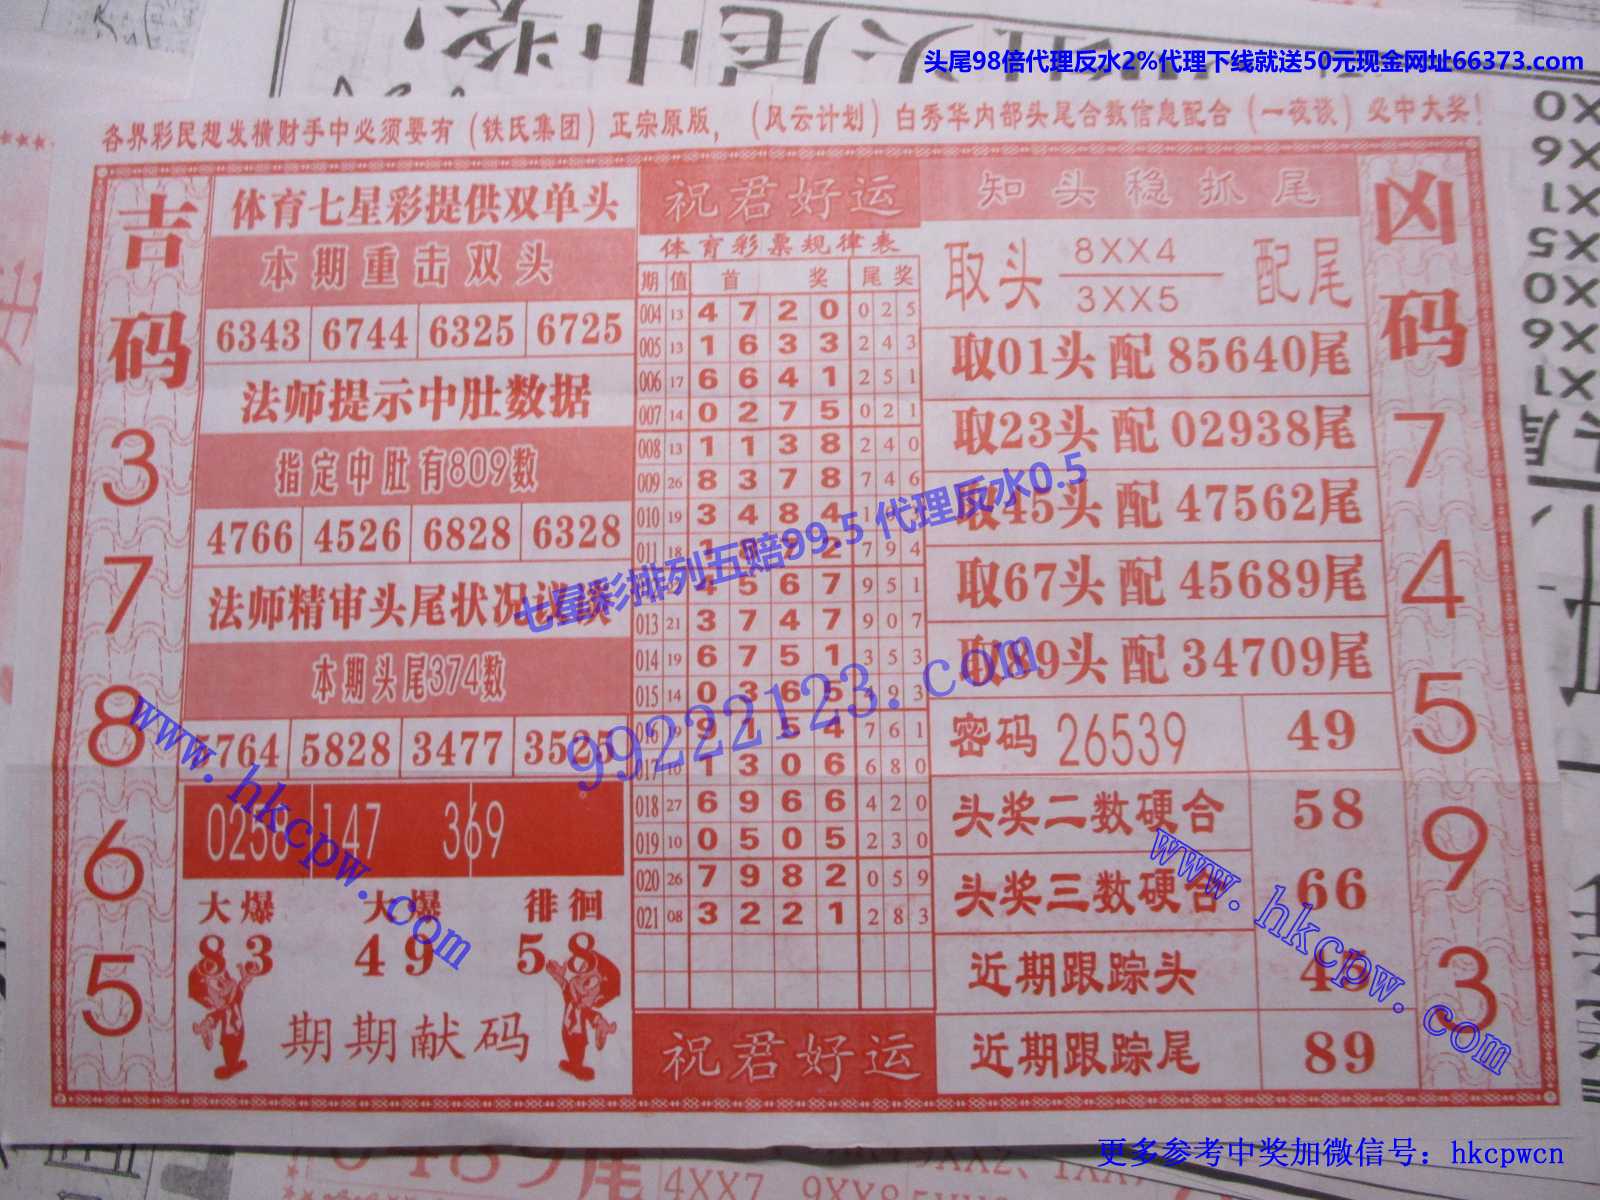 头尾98倍代理反水2%代理下线就送50元现金网址66373.com
各界彩民想发横财手中必须要有（铁氏集团）正宗原版，（风云计划）白秀华内部头尾合数信息配合（一夜谈）必中大奖！
吉码
3
7
8
6
5
体育七星彩提供双单头
本期重击双头
6343 6744 6325 6725
法师提示中肚数据
指定中肚有809数
4766 4526 6828 6328
法师精审头尾状况
本期头尾374数
5764 5828 3477 3525
0258 147 369
大爆 大爆 徘徊
83 49 58
期期献码
祝君好运
体育彩票规律表
期 值 首 奖 尾奖
004 13 4 7 2 0 0 2 5
005 13 1 6 3 3 2 4 3
006 17 6 6 4 1 2 5 1
007 14 0 2 7 5 0 2 1
008 13 1 1 3 8 2 4 0
009 26 8 3 7 8 7 4 6
010 19 3 4 8 4 1
011 18 1 7 2 7 9 4
4 5 6 7 9 5 1
013 21 3 7 4 7 9 0 7
014 19 6 7 5 1 3 5 3
015 14 0 3 6 5 9 3
016 19 9 1 5 4 7 6 1
017 1 3 0 6 6 8 0
018 27 6 9 6 6 4 2 0
019 10 0 5 0 5 2 3 0
020 26 7 9 8 2 0 5 9
021 08 3 2 2 1 2 8 3
祝君好运
知头稳抓尾
取头 8XX4 3XX5 配尾
取01头 配 85640尾
取23头 配 02938尾
取45头 配 47562尾
取67头 配 45689尾
取89头 配 34709尾
密码 26539 49
头奖二数硬合 58
头奖三数硬合 66
近期跟踪头 45
近期跟踪尾 89
凶码
7
4
5
9
3
七星彩排列五赔99.5 代理反水0.5
99222123.com
www.hkcpw.com
www.hkcpw.com
0X
6X
1X
5X
0X
6X
1X
4XX7
更多参考中奖加微信号：hkcpwcn